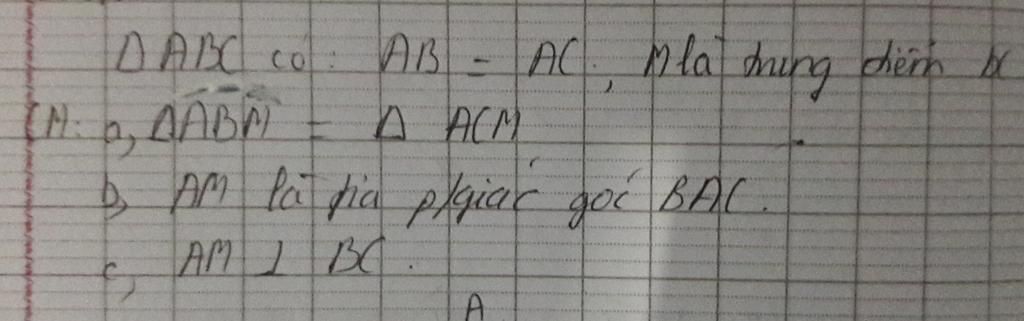 Δ ABC có: AB = AC, M là trung điểm BC
CM: a, ΔABM = Δ ACM
b, AM là tia p/giác góc BAC.
c, AM ⊥ BC.
A